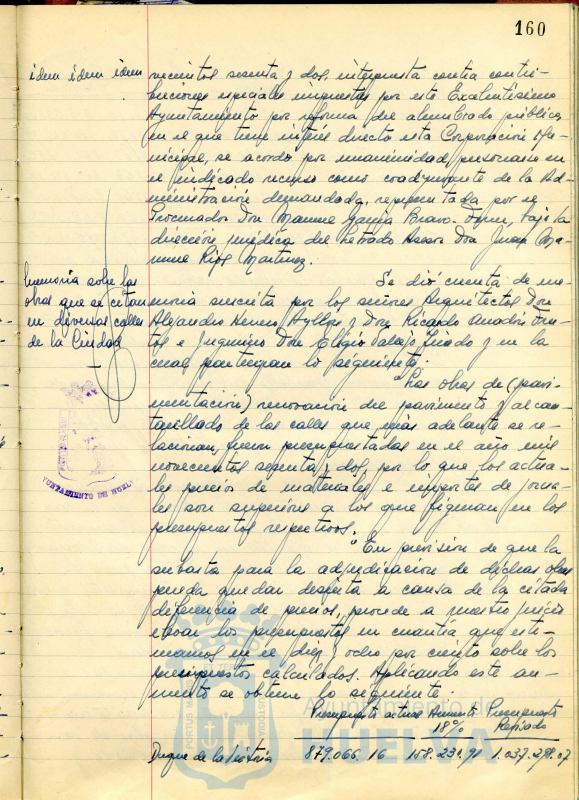 160
idem idem idem
vecientos sesenta y dos, interpuesta contra contri-
buciones especiales impuestas por este Excelentísimo
Ayuntamiento por reforma del alumbrado público,
en el que tiene interés directo esta Corporación Mu-
nicipal, se acordó por unanimidad, personarse en
el indicado recurso como coadyuvante de la Ad-
ministración demandada, representada por el
Procurador Don Manuel García Bravo-Ferrer, bajo la
dirección jurídica del Letrado Asesor Don Juan Ma-
nuel Ríos Martínez.
Memoria sobre las
obras que se citan
en diversas calles
de la Ciudad
Se dió cuenta de me-
moria suscrita por los señores Arquitectos Don
Alejandro Herrero Ayllón y Don Ricardo Anadón Fru-
tos e Ingeniero Don Eligio y en la
cual participan lo siguiente:
"Las obras de (pavi-
mentación) renovación del pavimento y alcan-
tarillado de las calles que más adelante se re-
lacionan, fueron presupuestadas en el año mil
novecientos sesenta y dos, por lo que los actua-
les precios de materiales e importes de jorna-
les son superiores a los que figuran en los
presupuestos respectivos.
"En previsión de que la
subasta para la adjudicación de dichas obras
pueda quedar desierta a causa de la citada
diferencia de precios, procede a nuestro juicio
elevar los presupuestos en cuantía que esti-
mamos en el diez y ocho por ciento sobre los
presupuestos calculados. Aplicando este au-
mento se obtiene lo siguiente:
Presupuesto actual Aumento Presupuesto
18% Revisado
Duque de la Victoria 879.066,16 158.231,91 1.037.298,07
AYUNTAMIENTO DE HUELVA
Ayuntamiento de
HUELVA